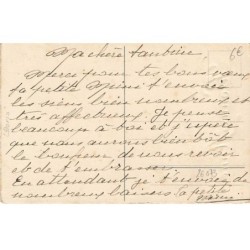 Ma chère tantine
Merci pour tes bons vœux
ta petite Mimi t'envoie
les siens bien nombreux et
très affectueux. Je pense
beaucoup à toi et j'espère
que nous aurons bientôt
le bonheur de nous revoir
et de t'embrasser
En attendant je t'envoie de
nombreux baisers Ta petite